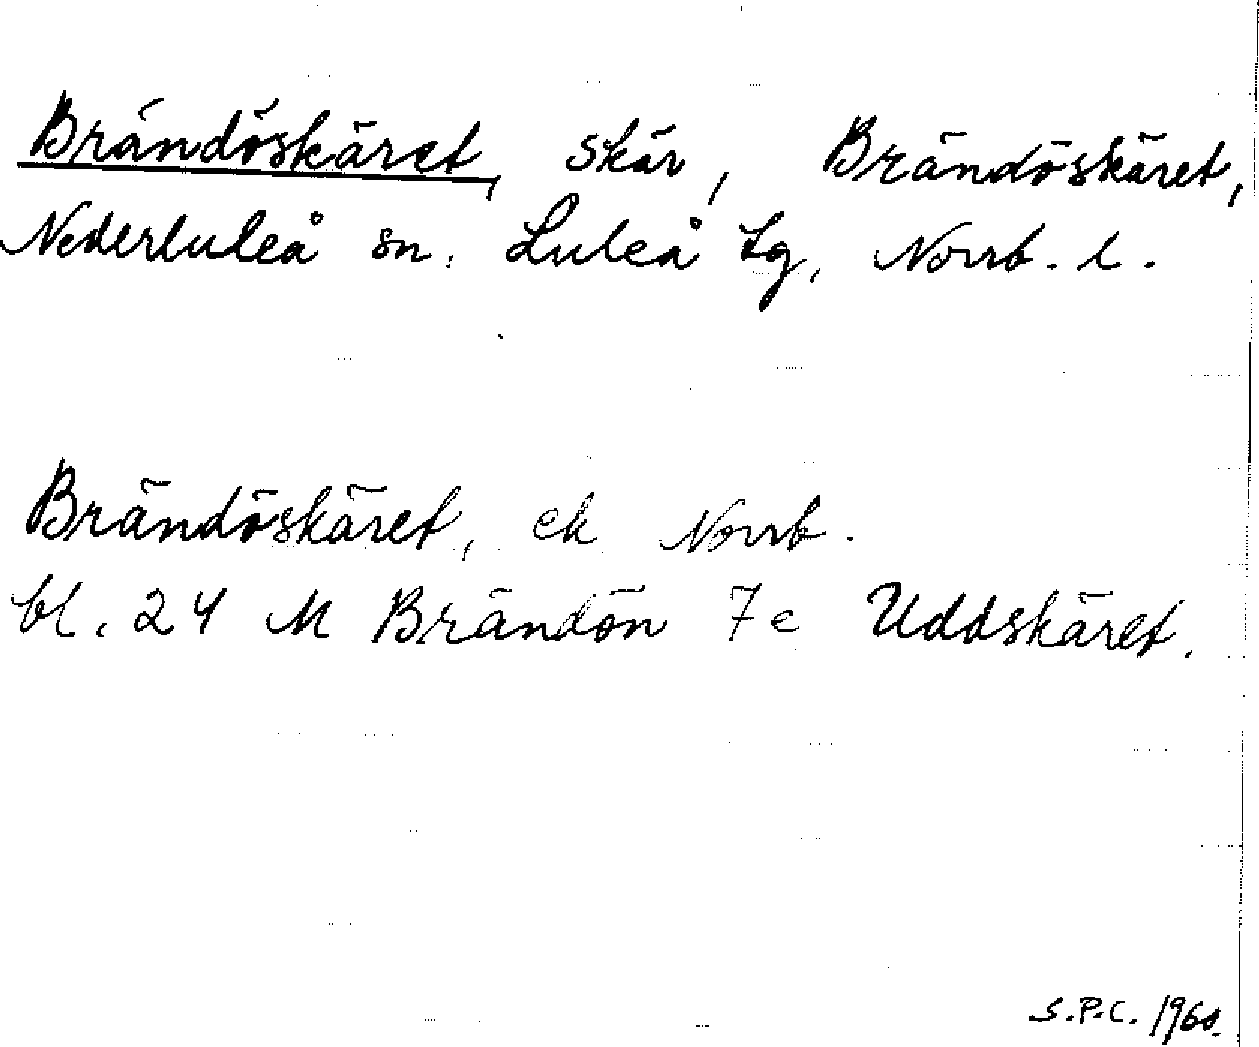 Brändöskäret, skär, Brändöskäret,
Nederluleå sn. Luleå tg, Norrb. l.
Brändöskäret, ek Norrb.
bl. 24 M Brändön 7e Uddskäret.
S.P.C. 1960.